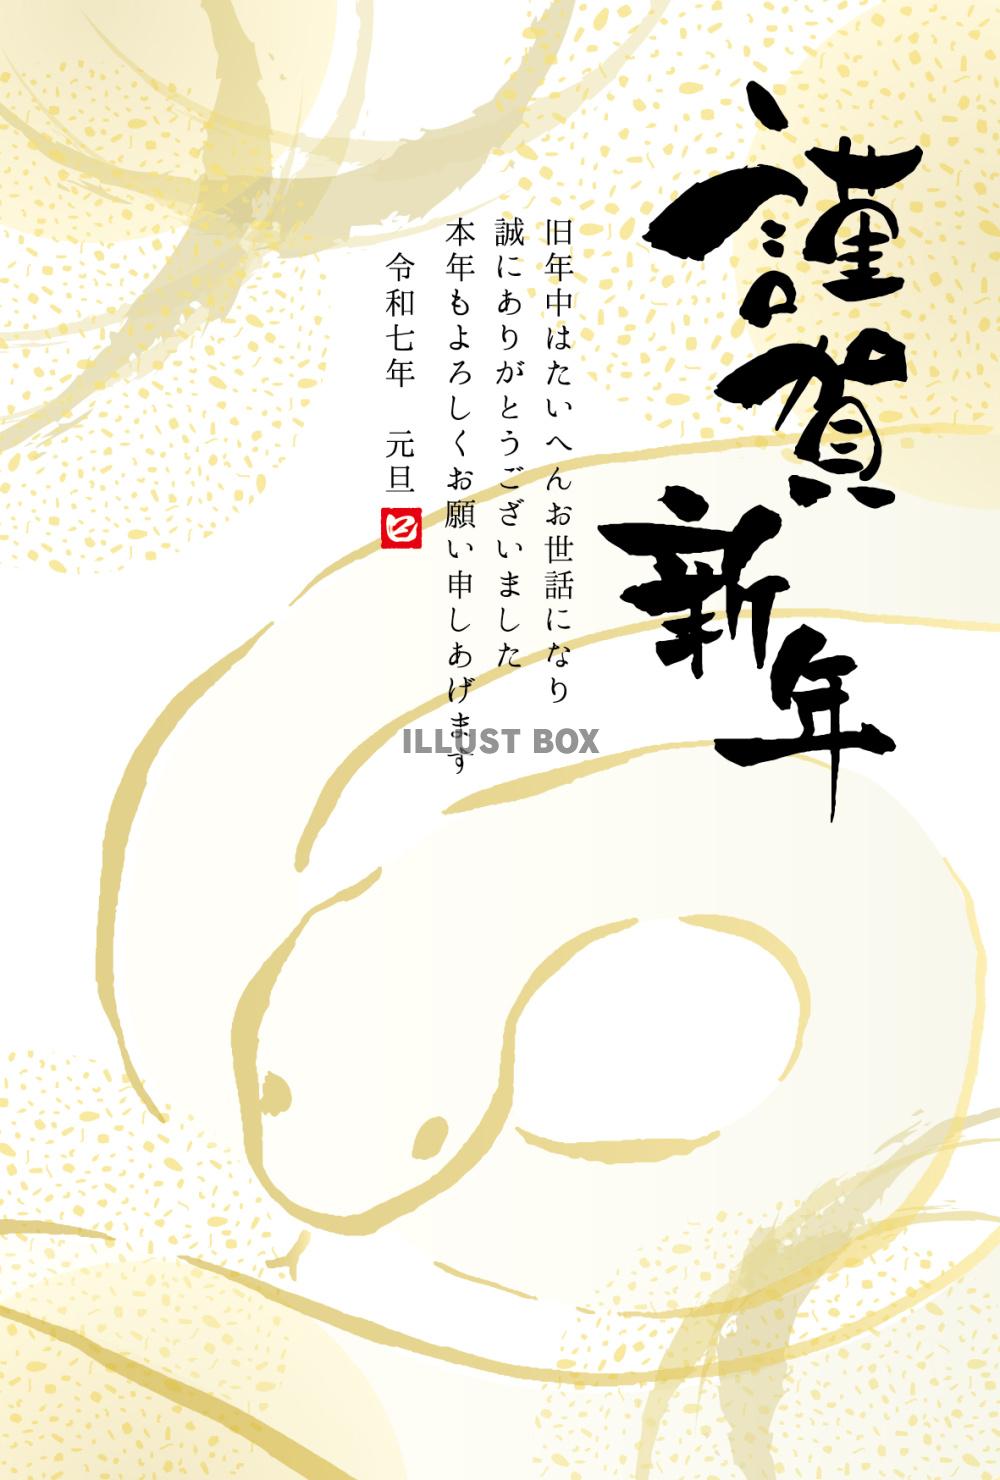 謹賀新年
旧年中はたいへんお世話になり
誠にありがとうございました
本年もよろしくお願い申しあげます
令和七年 元旦
巳
ILLUST BOX